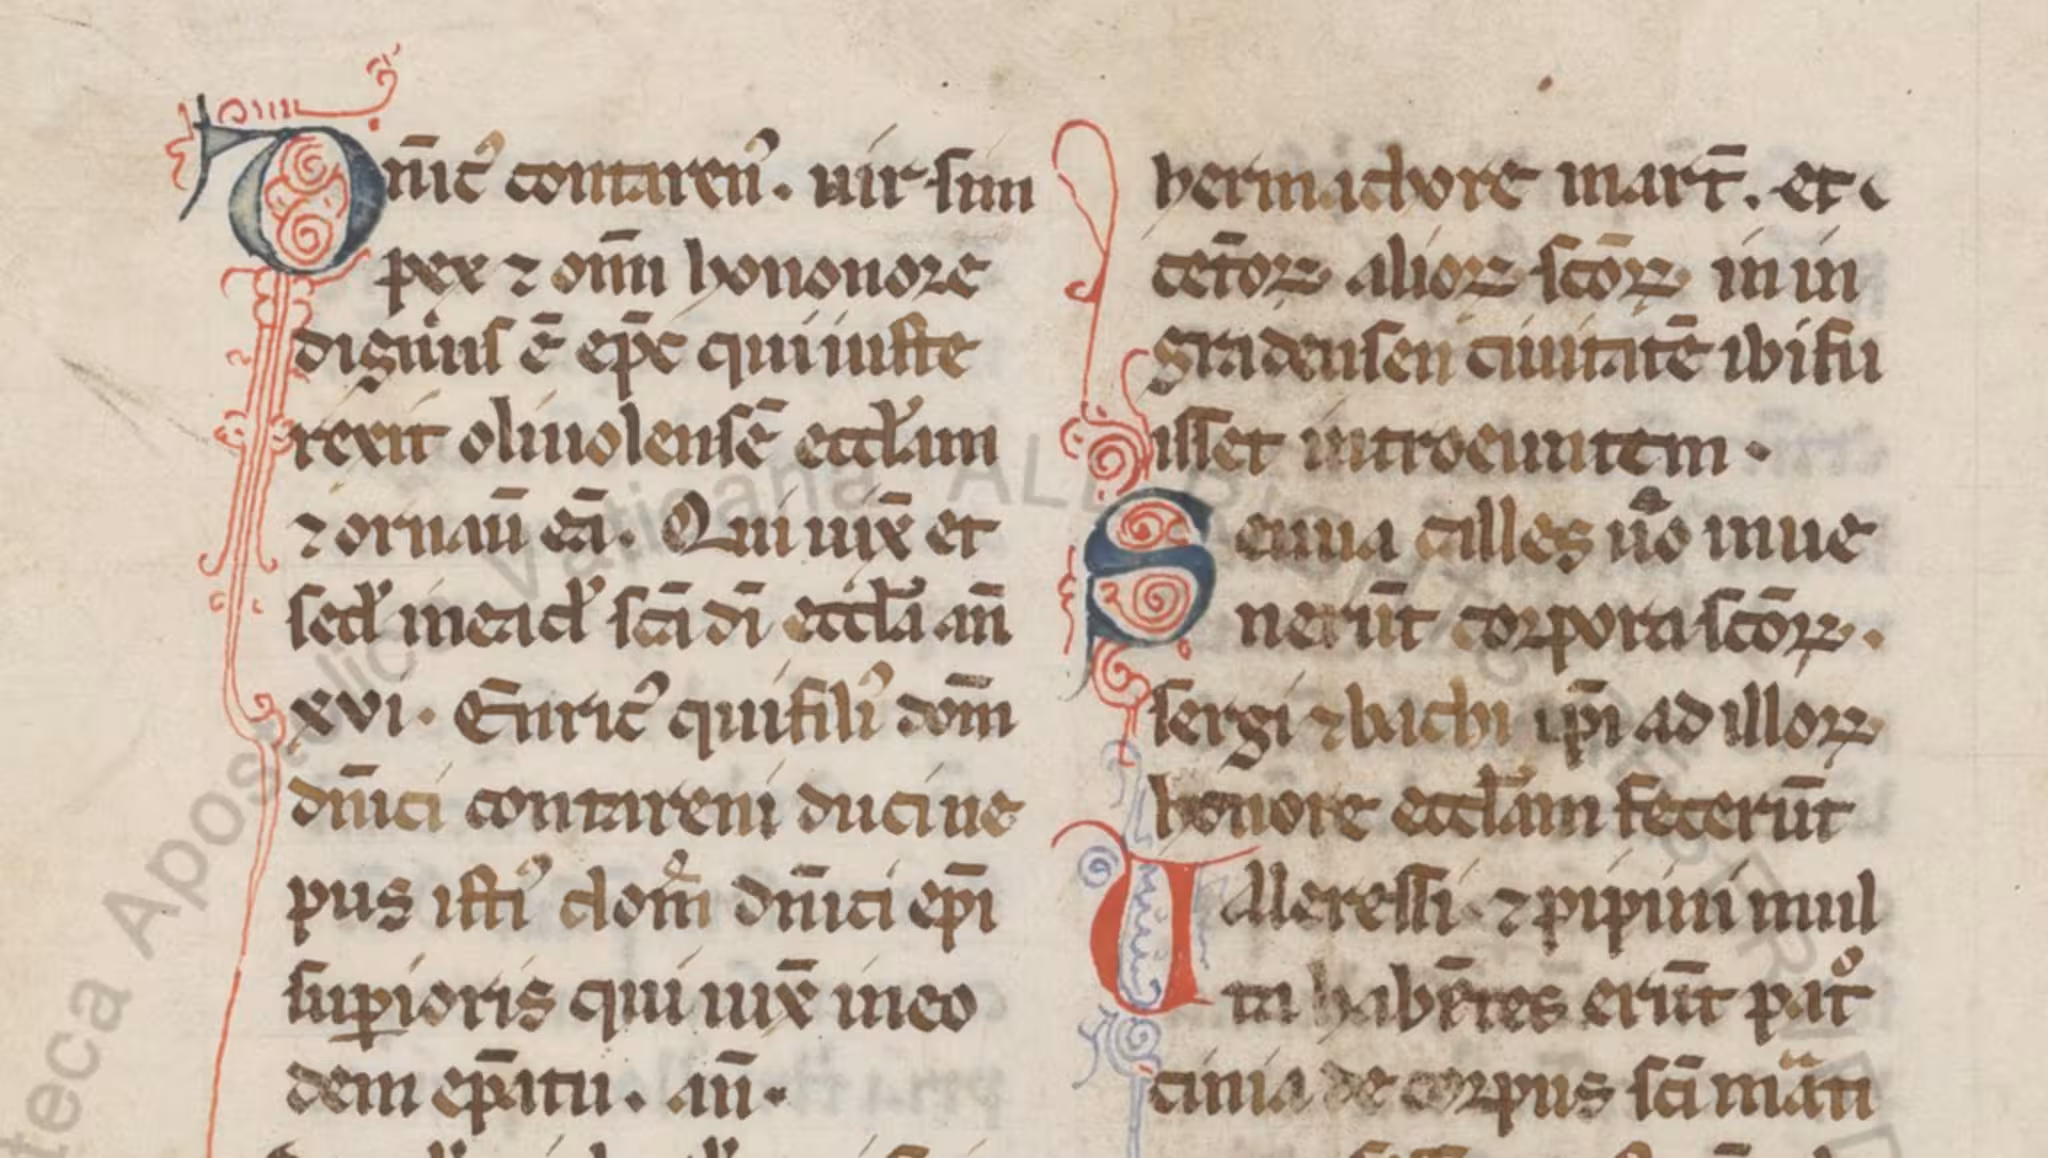 Dn̄ic᾽ contaren᾽. uir sim
pex ⁊ om̄i hononore
dignius ē ep̄c qui iuste
rexit oliuolensē eccl̓am
⁊ ornauī eā. Qui uix̄ et
sed̓ in ead̓ sc̄a dī eccl̄a an̄
xvi. Enric᾽ qui fili᾽ dom̄
dn̄ici contareni duci ue
pus isti᾽ dom̄ dn̄ici ep̄i
sup̱ioris qui uix̄ in eo
dem ep̄atu. an̄.
hermachore mart̄. et
cet̄oꝝ alioꝝ sc̄oꝝ in in
gradensen ciuitatē ibi fu
isset introeuntem.
Seniua cilles ūo inue
nerūt corpora sc̄oꝝ.
sergi ⁊ bachi ip̄i ad illoꝝ
honore eccl̄am fecerūt
Ualleressi ⁊ pipini mul
ta habēres erūt pat̊
cinia de corpus sc̄i mati